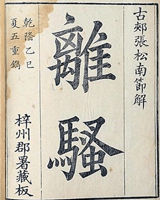 古郟張松南節解
離騷
乾隆乙巳
夏五重鐫
梓州郡署藏板